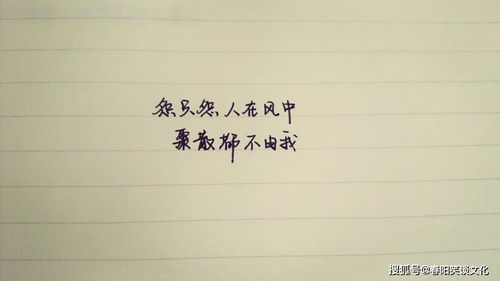 怨只怨人在风中
聚散都不由我
搜狐号@春阳笑谈文化